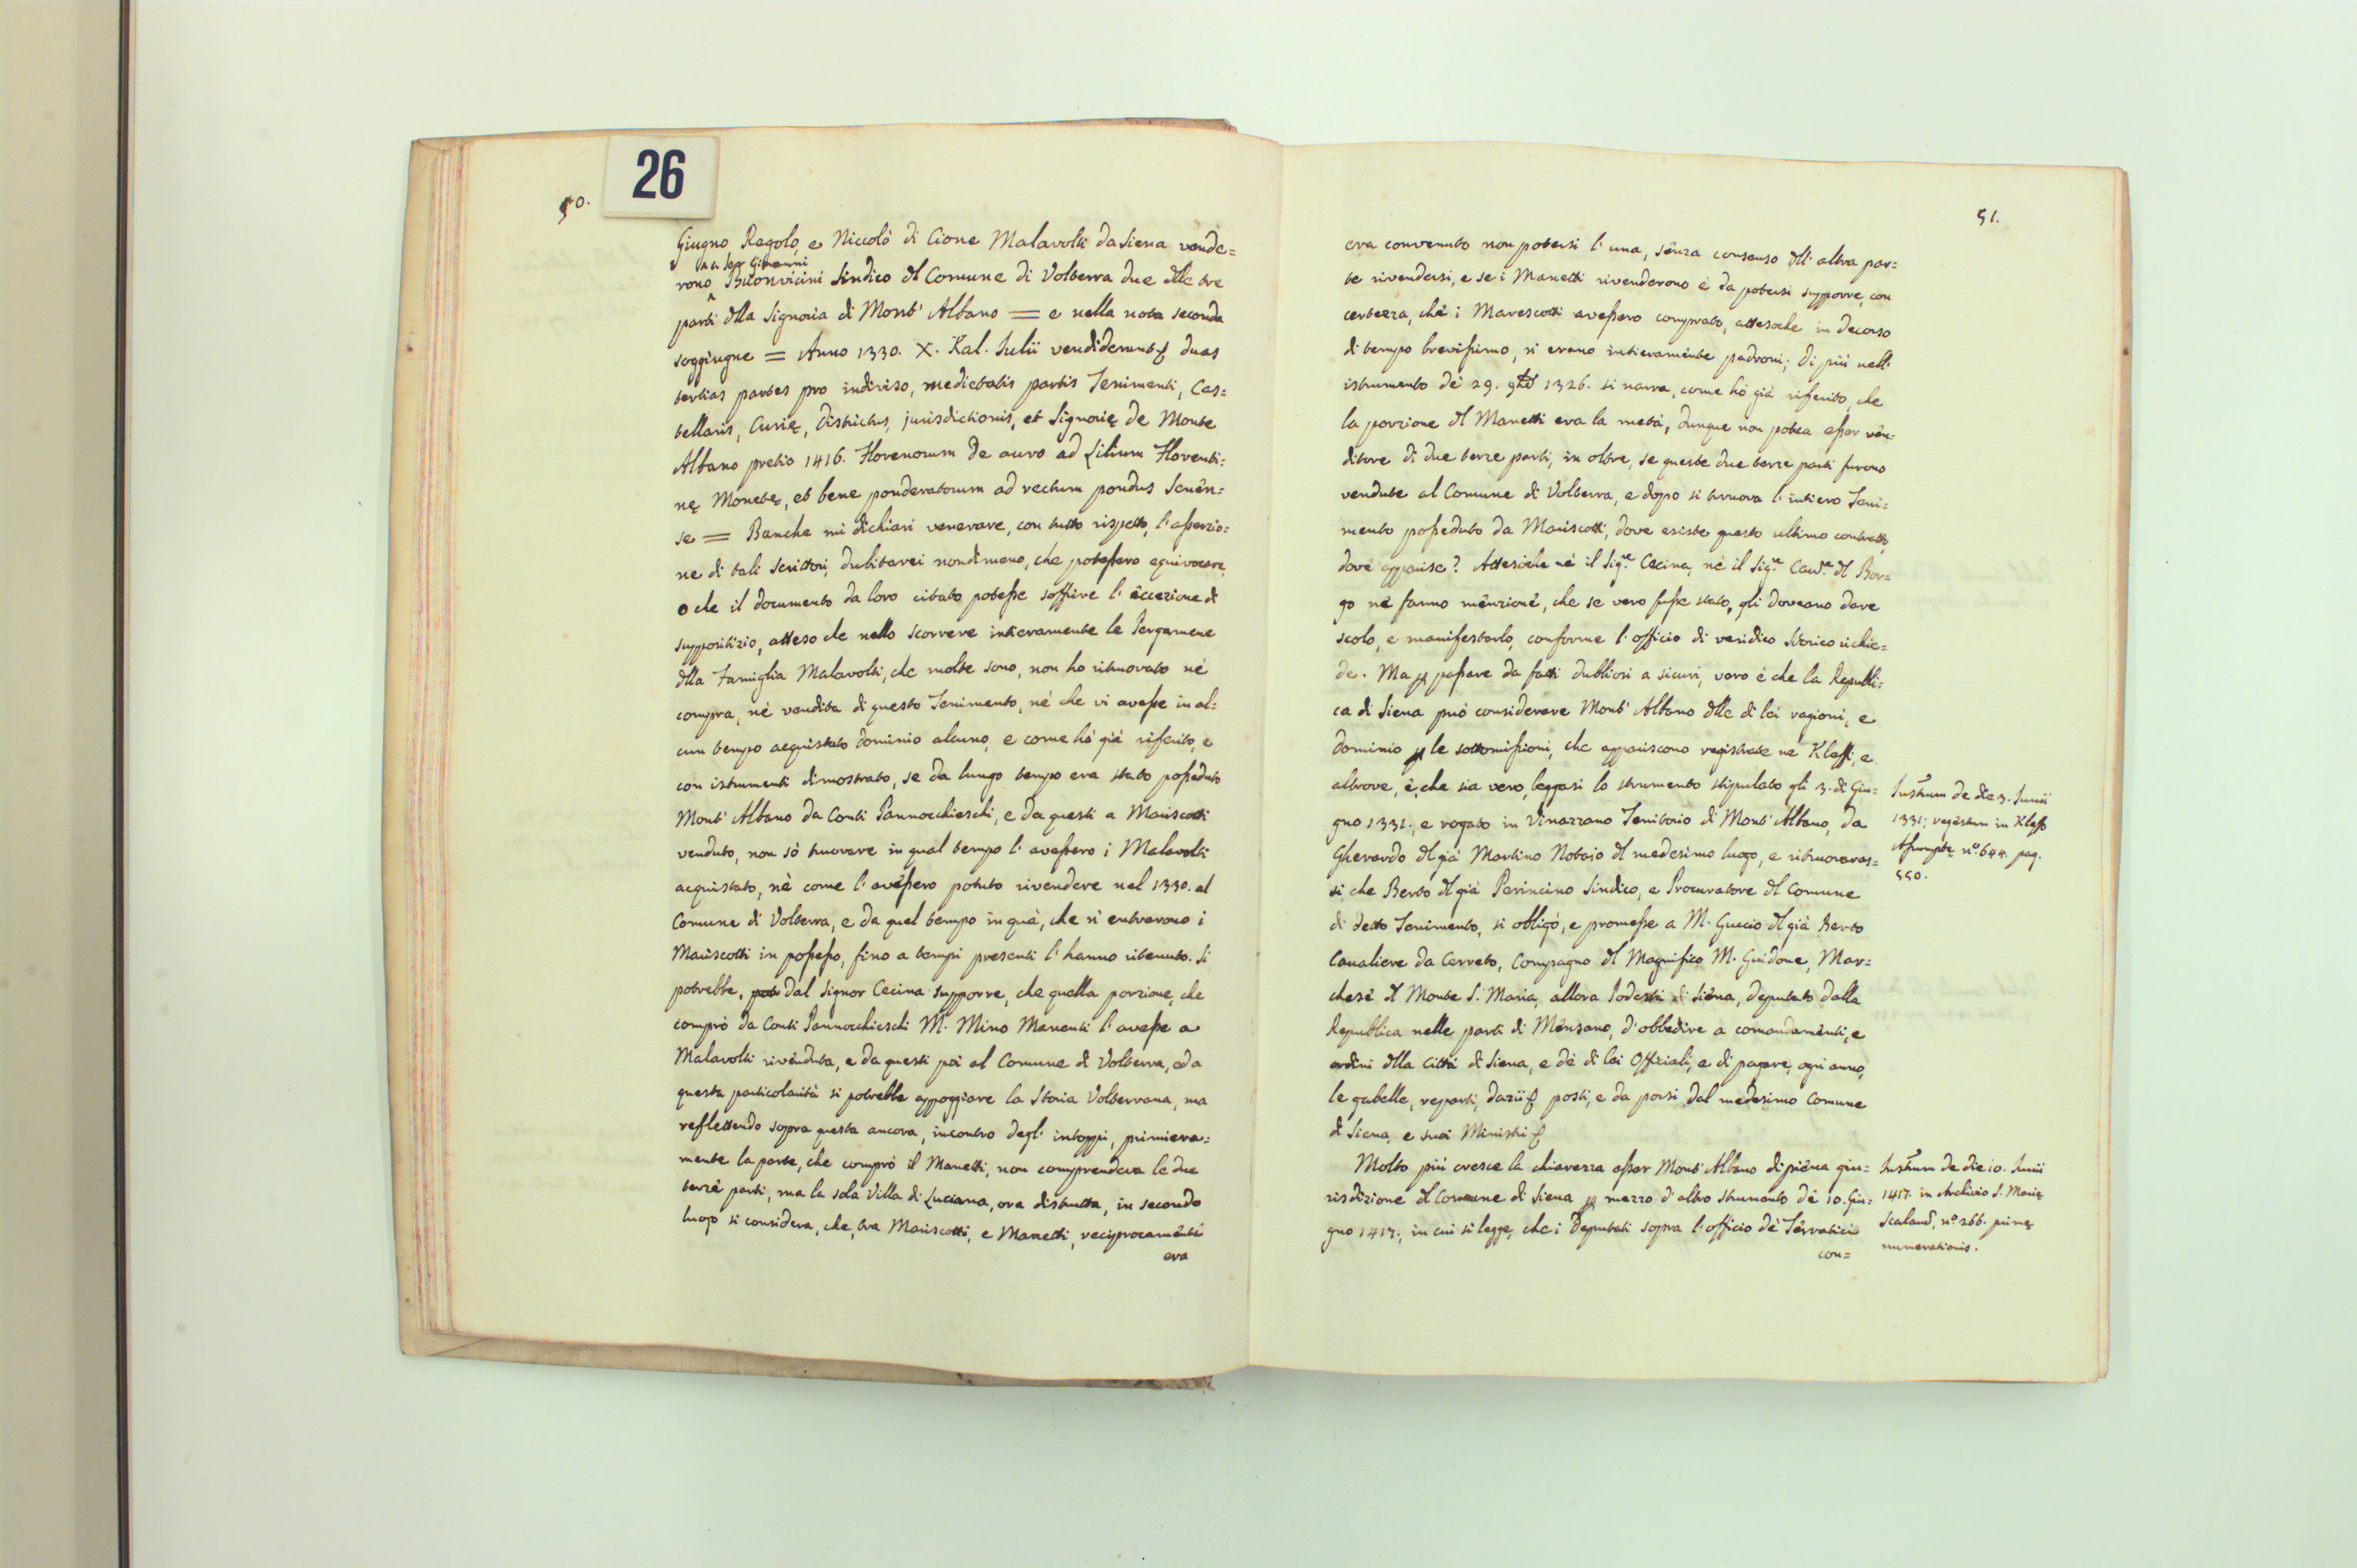 26
50.
Giugno Regolo, e Niccolò di Cione Malavolti da Siena vende=
a Ser Giovanni
rono Buonvicini Sindico dl Comune di Volterra due dlle tre
parti dlla Signoria di Mont' Albano = e nella nota seconda
soggiugne = Anno 1330. X. Kal. Julii vendiderunt duas
tertias partes pro indiviso, medietatis partis Tenimenti, Cas=
tellaris, Curię, Districtus, jurisdictionis, et Signorię de Monte
Albano pretio 1416. Florenorum de auro ad Lilium Florenti=
nę Monetę, et bene ponderatorum ad rectum pondus Senên=
se = Banche mi dichiari venerare, con tutto rispetto, l'asserzio=
ne di tali Scrittori, dubitarei nondimeno, che potessero equivocare,
o che il documento da loro citato potesse soffrire l'eccezione di
suppositizio, atteso che nello scorrere intieramente le Pergamene
dlla Famiglia Malavolti, che molte sono, non ho ritruovato nè
compra, nè vendita di questo Tenimento, nè che vi avesse in al=
cun tempo acquistato dominio alcuno, e come hò già riferito, e
con istrumenti dimostrato, se da lungo tempo era stato posseduto
Mont' Albano da Conti Pannocchieschi, e da questi a Mariscotti
venduto, non sò truovare in qual tempo l'avessero i Malavolti
acquistato, nè come l'avessero potuto rivendere nel 1330. al
Comune di Volterra, e da quel tempo in quà, che n' entrarono i
Mariscotti in possesso, fino a tempi presenti l'hanno ritenuto. Si
potrebbe, dal Signor Cecina supporre, che quella porzione, che
comprò da Conti Pannocchieschi M. Mino Manenti l'avesse a
Malavolti rivenduta, e da questi poi al Comune di Volterra, e da
questa particolarità si potrebbe appoggiare la Storia Volterrana, ma
reflettendo sopra questa ancora, incontro degl' intoppi, primiera=
mente la parte, che comprò il Manetti, non comprendeva le due
terze parti, ma la sola Villa di Luciana, ora distrutta, in secondo
luogo si considera, che, tra Mariscotti, e Manetti, reciprocamente
era
51.
era convenuto non potersi l'una, senza consenso dll' altra par=
te rivendersi, e se i Manetti rivenderono è da potersi supporre, con
certezza, che i Marescotti avessero comprato, attesoche in decorso
di tempo brevissimo, n' erano intieramente padroni; di più nell'
istrumento de 29. 1326. si narra, come hò già riferito, che
la porzione dl Manetti era la metà, dunque non potea esser vên=
ditore di due terze parti; in oltre, se queste due terze parti furono
vendute al Comune di Volterra, e dopo si truova l'intiero Teni=
mento posseduto da Mariscotti, dove esiste questo ultimo contratto,
dove apparisce? Attesoche nè il Sig.re Cecina, nè il Sig.re Cav.re dl Bor=
go nè fanno menzione, che se vero fusse stato, gli doveano dare
scolo, e manifestarlo, conforme l'officio di veridico Storico richie=
de. Ma p passare da fatti dubbiosi a sicuri, vero è che la Republi=
ca di Siena può considerare Mont' Albano dlle di lei ragioni, e
dominio p le sottomissioni, che appariscono registrate ne Kleffi, e
altrove, è, che sia vero, leggasi lo strumento stipulato gli 3. di Giu=
gno 1331., e rogato in Vinazzano Territorio di Mont' Albano, da
Gherardo dl già Martino Notaio dl medesimo luogo, e ritruovaras=
si, che Berto dl già Perincino Sindico, e Procuratore dl Comune
di detto Tenimento, si obligò, e promesse a M. Guccio dl già Berto
Cavaliere da Cerreto, Compagno dl Magnifico M. Guidone, Mar=
chese dl Monte S. Maria, allora Podestà di Siena, deputato dalla
Republica nelle parti di Mênsano, d'obbedire a comandamênti, e
ordini dlla Città di Siena, e dè di lei Offiziali, e di pagare, ogni anno,
le gabelle, reparti, dazii posti, e da porsi dal medesimo Comune
di Siena, e suoi Ministri
Molto più cresce la chiarezza esser Mont' Albano di piêna giu=
risdizione dl Comune di Siena p mezzo d'altro strumento de 10. Giu=
gno 1417., in cui si legge, che i Deputati sopra l'officio de Sêrvatici
con=
Instrum de die 3. Junii
1331; regestum in Kleffo
Assumptę nº. 644. pag.
550.
Instrum de die 10. Junii
1417. in Archivio S. Marię
Scalarũ, nº. 266. primę
numerationis.